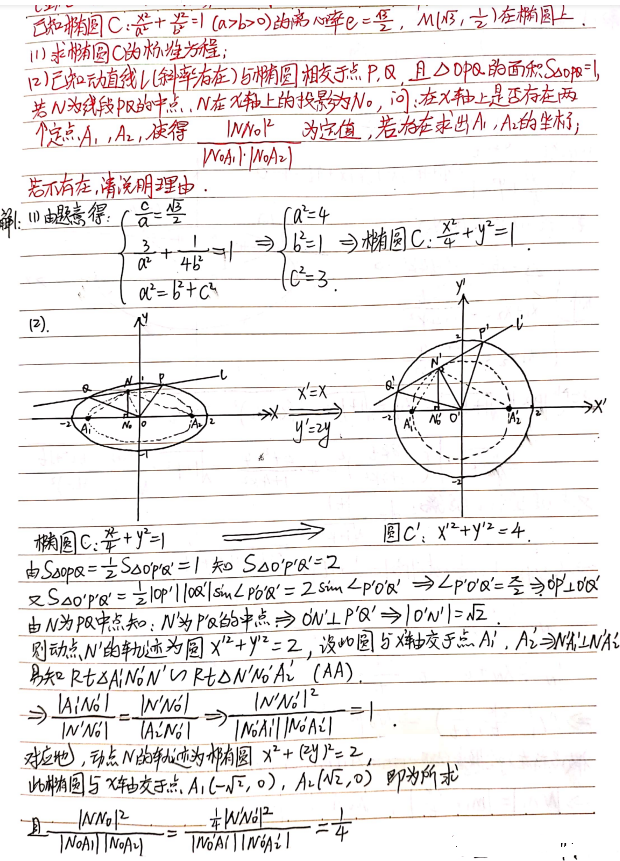 已知椭圆C: x²/a² + y²/b² = 1 (a>b>0)的离心率e = √3/2, M(√3, 1/2)在椭圆上.
(1) 求椭圆C的标准方程;
(2) 已知动直线l(斜率存在)与椭圆相交于点P,Q, 且△OPQ的面积S△OPQ=1,
若N为线段PQ的中点, N在x轴上的投影为N₀, 问: 在x轴上是否存在两
个定点A₁, A₂, 使得 |NN₀|²/(|N₀A₁|·|N₀A₂|) 为定值, 若存在求出A₁, A₂的坐标;
若不存在, 请说明理由.
解: (1) 由题意得: { c/a = √3/2, 3/a² + 1/4b² = 1, a² = b² + c² ⇒ { a² = 4, b² = 1, c² = 3. ⇒ 椭圆C: x²/4 + y² = 1.
(2).
y
Q N 1 P l
-2 A₁ N₀ O A₂ 2 X
-1
x' = x
y' = 2y
y'
2 P' l'
Q' N'
-2 A₁' N₀' O' A₂' 2 X'
-2
椭圆C: x²/4 + y² = 1 ⟹ 圆C': x'² + y'² = 4.
由S△OPQ = 1/2 S△O'P'Q' = 1 知 S△O'P'Q' = 2
又S△O'P'Q' = 1/2|OP'||OQ'|sin∠P'O'Q' = 2sin∠P'O'Q' ⇒ ∠P'O'Q' = π/2 ⇒ O'P'⊥O'Q'
由N为PQ中点知: N'为P'Q'的中点 ⇒ O'N'⊥P'Q' ⇒ |O'N'| = √2.
则动点N'的轨迹为圆 x'² + y'² = 2, 设此圆与x'轴交于点A₁', A₂' ⇒ N'A₁'⊥N'A₂'
易知 Rt△A₁'N₀'N' ∽ Rt△N'N₀'A₂' (AA).
⇒ |A₁'N₀'|/|N'N₀'| = |N'N₀'|/|A₂'N₀'| ⇒ |N'N₀'|²/(|N₀'A₁'||N₀'A₂'|) = 1.
对应地, 动点N的轨迹为椭圆 x² + (2y)² = 2,
此椭圆与x轴交于点A₁(-√2, 0), A₂(√2, 0) 即为所求
且 |NN₀|²/(|N₀A₁||N₀A₂|) = 1/4|N'N₀'|²/(|N₀'A₁'||N₀'A₂'|) = 1/4